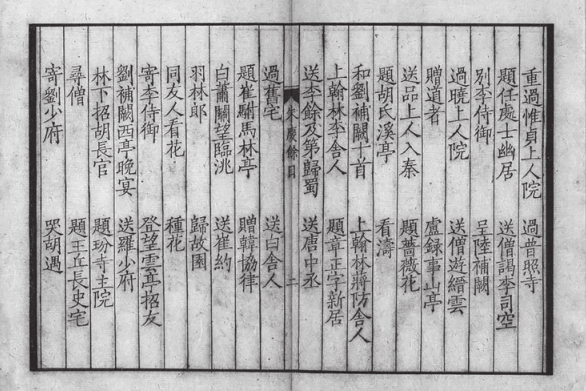 重過惟貞上人院　過普照寺
題任處士幽居　送僧謁李司空
別李侍御　呈陸補闕
過曉上人院　送僧遊縉雲
贈道者　盧錄事山亭
送品上人入秦　題薔薇花
題胡氏溪亭　看濤
和劉補闕十首　上翰林蔣防舍人
上翰林李舍人　題章正字新居
送李餘及第歸蜀　送唐中丞
朱慶餘目　二
過舊宅　送白舍人
題崔駙馬林亭　贈韓協律
自蕭關望臨洮　送崔約
羽林郎　歸故園
同友人看花　種花
寄李侍御　登望雲亭招友
劉補闕西亭晚宴　送羅少府
林下招胡長官　題玢寺主院
尋僧　題王丘長史宅
寄劉少府　哭胡遇